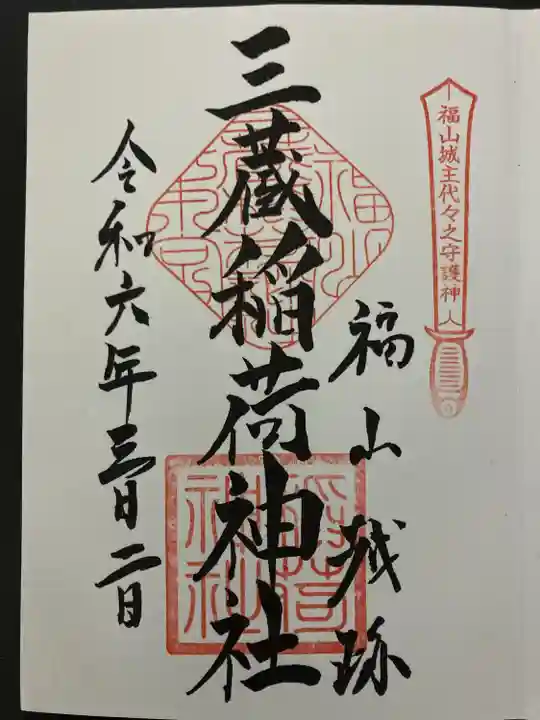 福山城主代々之守護神
福山城跡
三蔵稲荷神社
令和六年三月二日